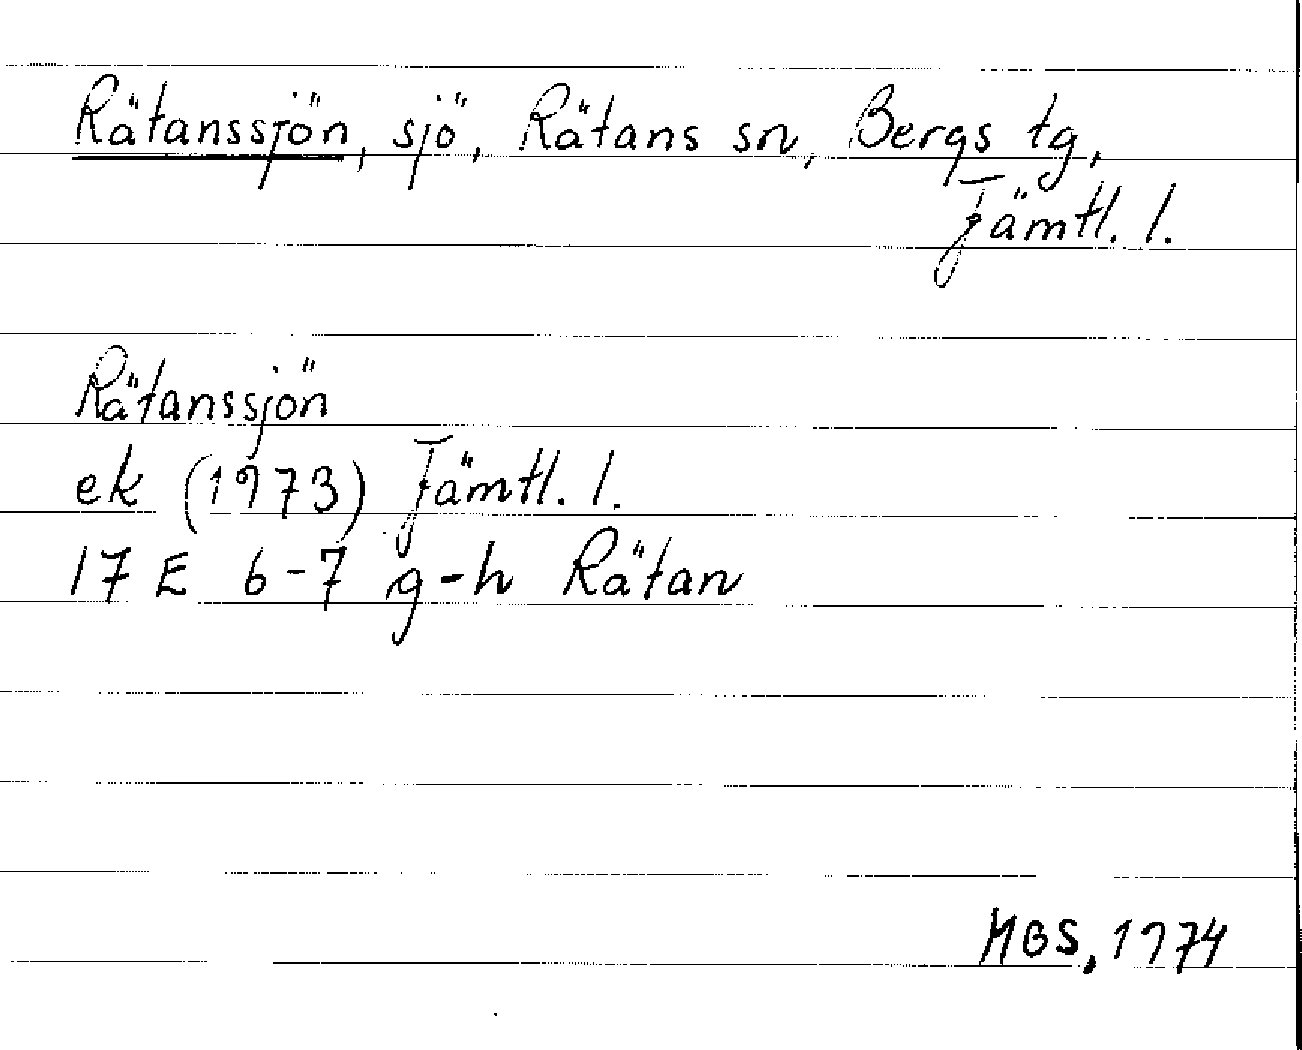 Rätanssjön, sjö, Rätans sn, Bergs tg,
Jämtl. l.
Rätanssjön
ek (1973) Jämtl. l.
17 E 6-7 g-h Rätan
MBS, 1974